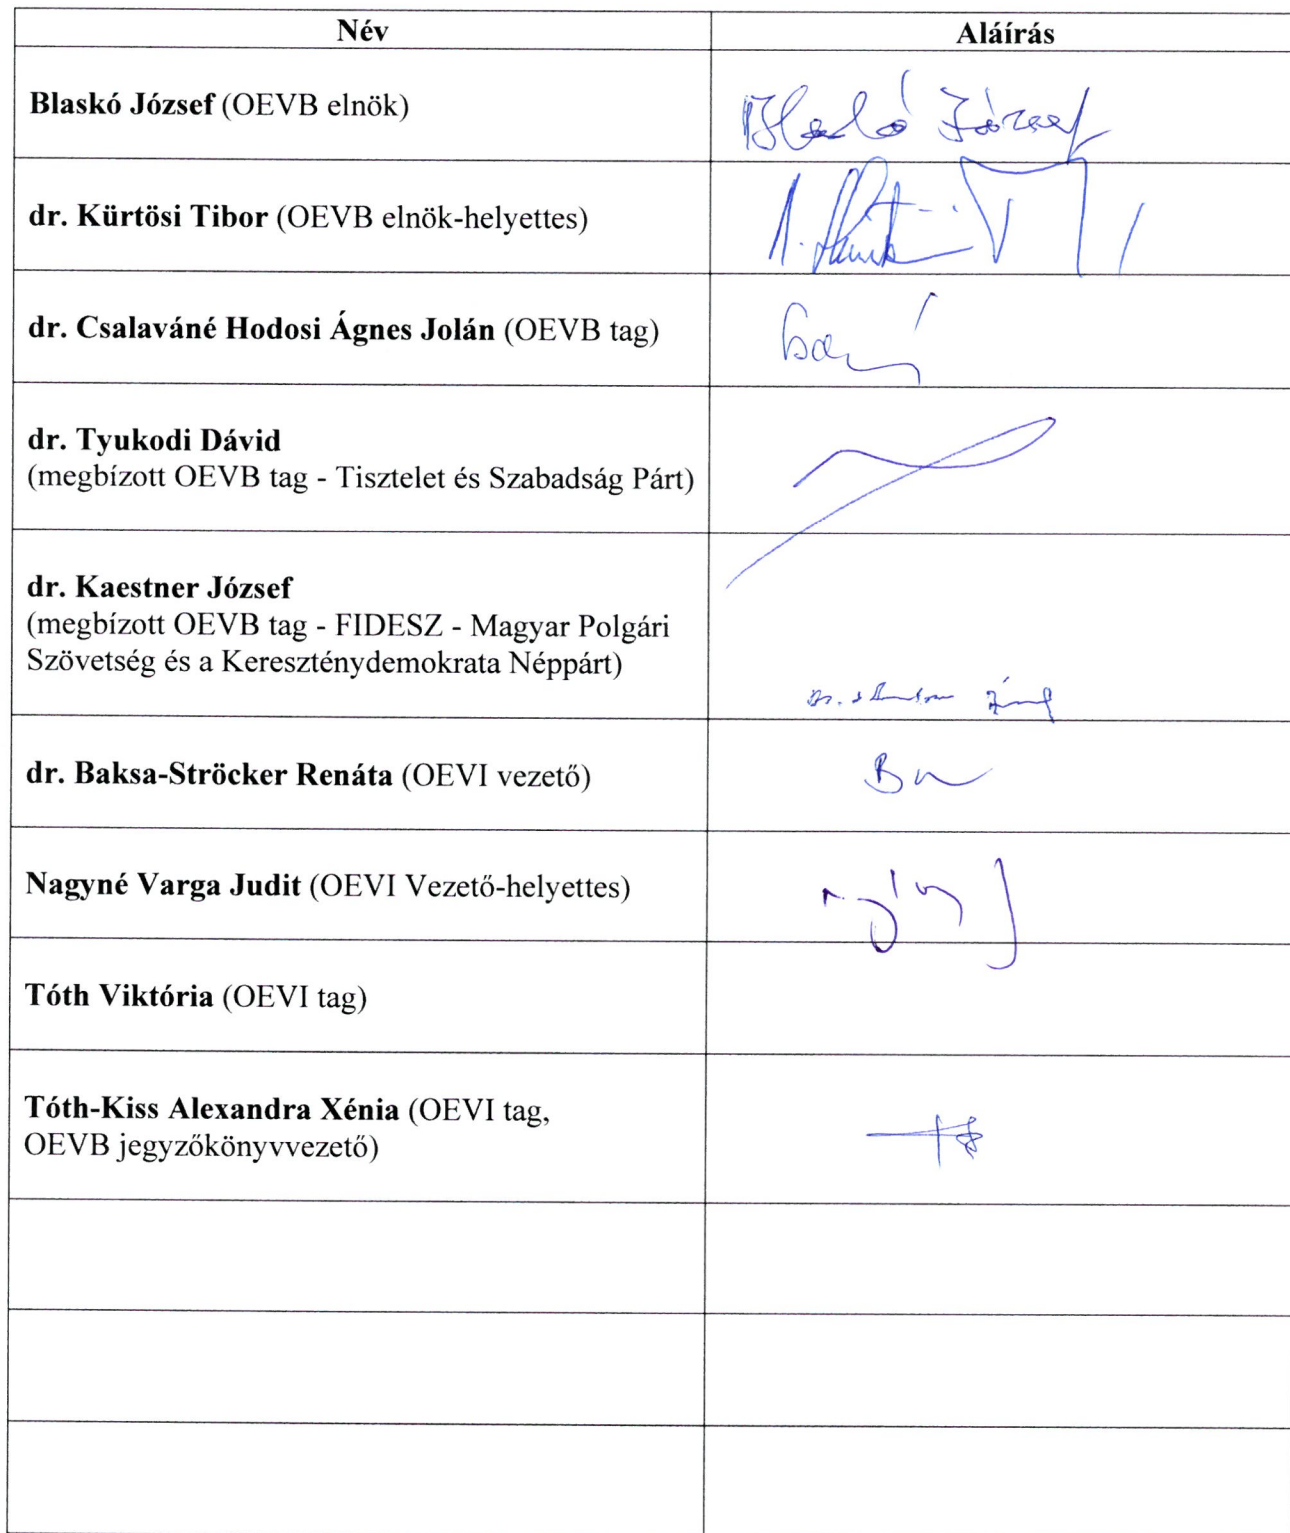 Név Aláírás
Blaskó József (OEVB elnök) Blaskó József
dr. Kürtösi Tibor (OEVB elnök-helyettes)
dr. Csalaváné Hodosi Ágnes Jolán (OEVB tag)
dr. Tyukodi Dávid
(megbízott OEVB tag - Tisztelet és Szabadság Párt)
dr. Kaestner József
(megbízott OEVB tag - FIDESZ - Magyar Polgári
Szövetség és a Kereszténydemokrata Néppárt)
dr. Baksa-Ströcker Renáta (OEVI vezető)
Nagyné Varga Judit (OEVI Vezető-helyettes)
Tóth Viktória (OEVI tag)
Tóth-Kiss Alexandra Xénia (OEVI tag,
OEVB jegyzőkönyvvezető)